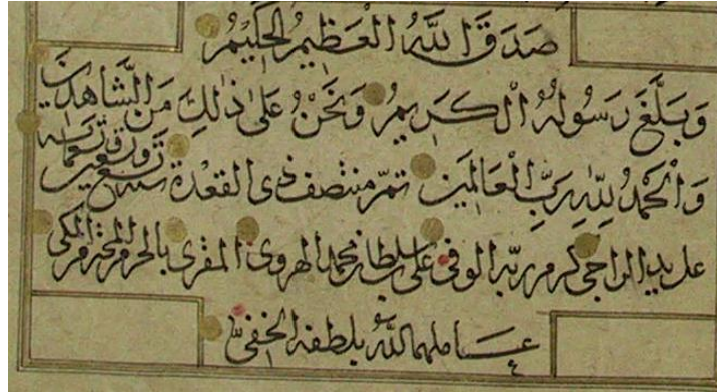 صَدَقَ اللَّهُ الْعَظِيمُ الْحَكِيمُ
وَبَلَّغَ رَسُولُهُ الْكَرِيمُ وَنَحْنُ عَلَى ذَلِكَ مِنَ الشَّاهِدِينَ
وَالْحَمْدُ لِلَّهِ رَبِّ الْعَالَمِينَ تمّ منتصف ذى القعدة سنة
على يد الراجى كرم ربه الوفى على بن سلطان محمد الهروى المقرى بالحرم المحترم المكى
عاملهما الله بلطفه الخفى